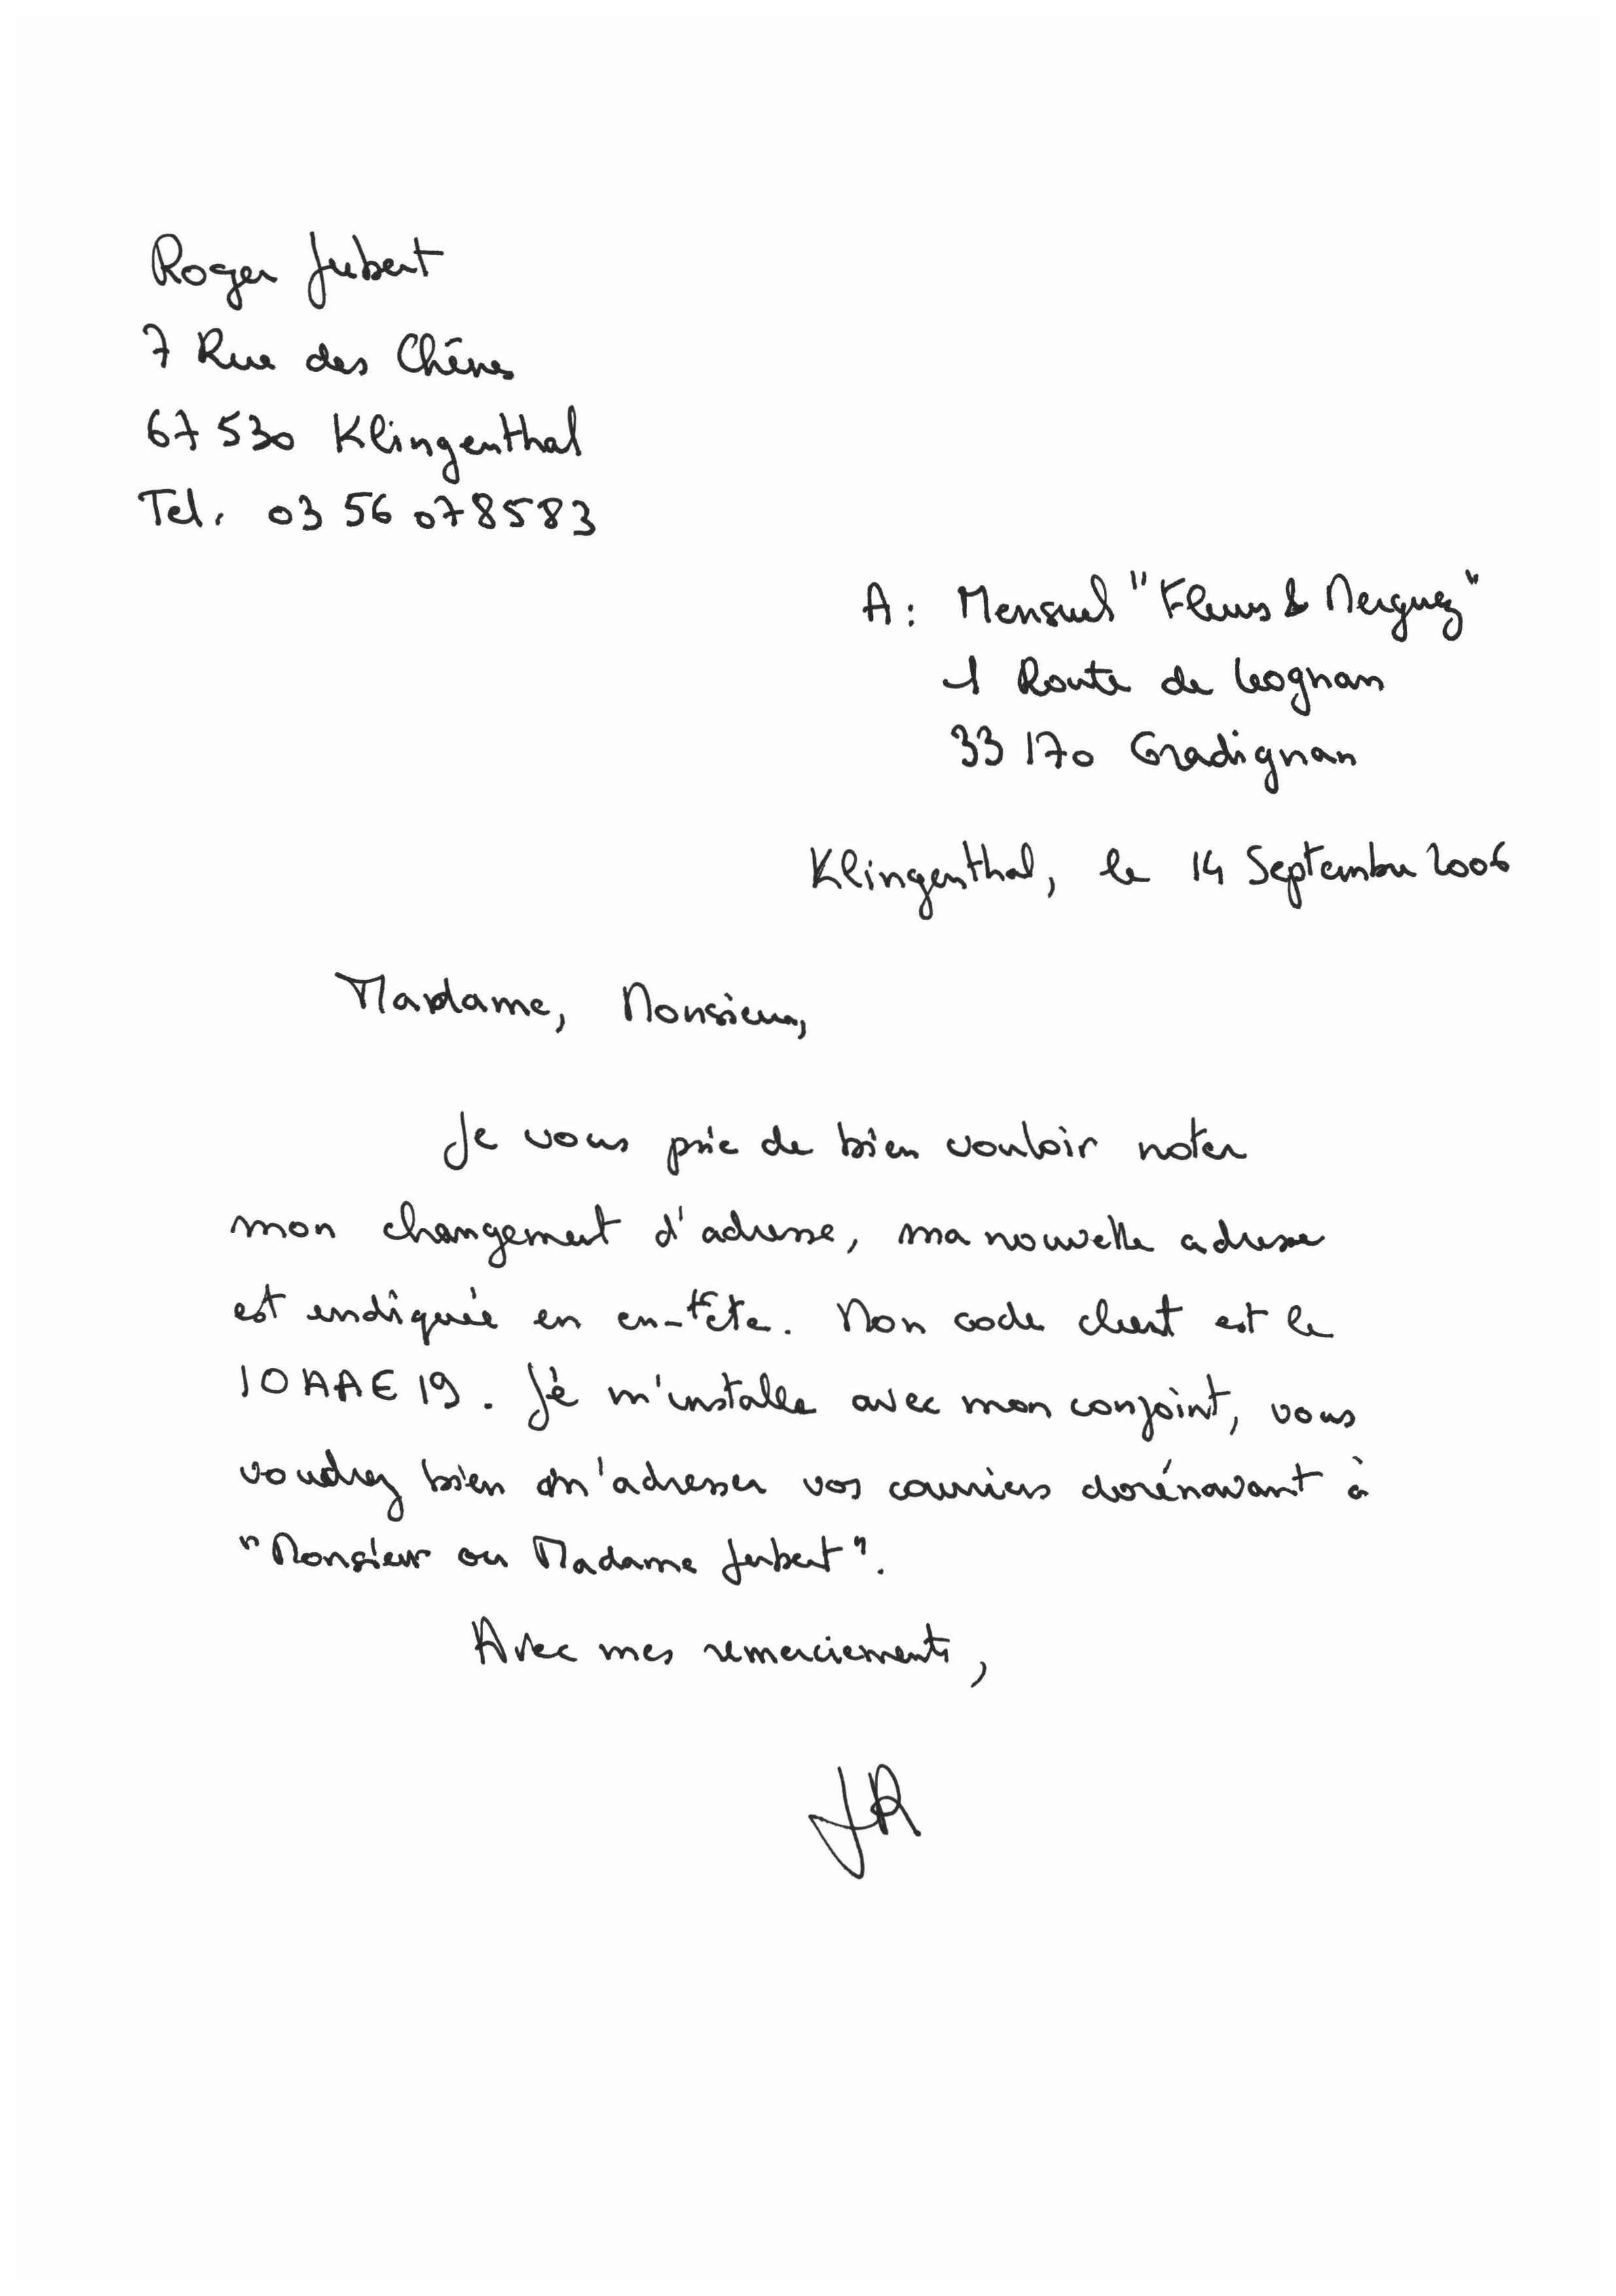 Roger Jubert
7 Rue des Chênes
67 530 Klingenthal
Tel. 03 56 078583
A: Mensuel "Fleurs & Merguez"
1 Route de Leognan
33 170 Gradignan
Klingenthal, le 14 Septembre 2006
Madame, Monsieur,
Je vous prie de bien vouloir noter
mon changement d'adresse, ma nouvelle adresse
est indiquée en en-tête. Mon code client est le
IOAAE19. Je m'installe avec mon conjoint, vous
voudrez bien m'adresser vos courriers dorénavant à
"Monsieur ou Madame Jubert".
Avec mes remerciements,
JR